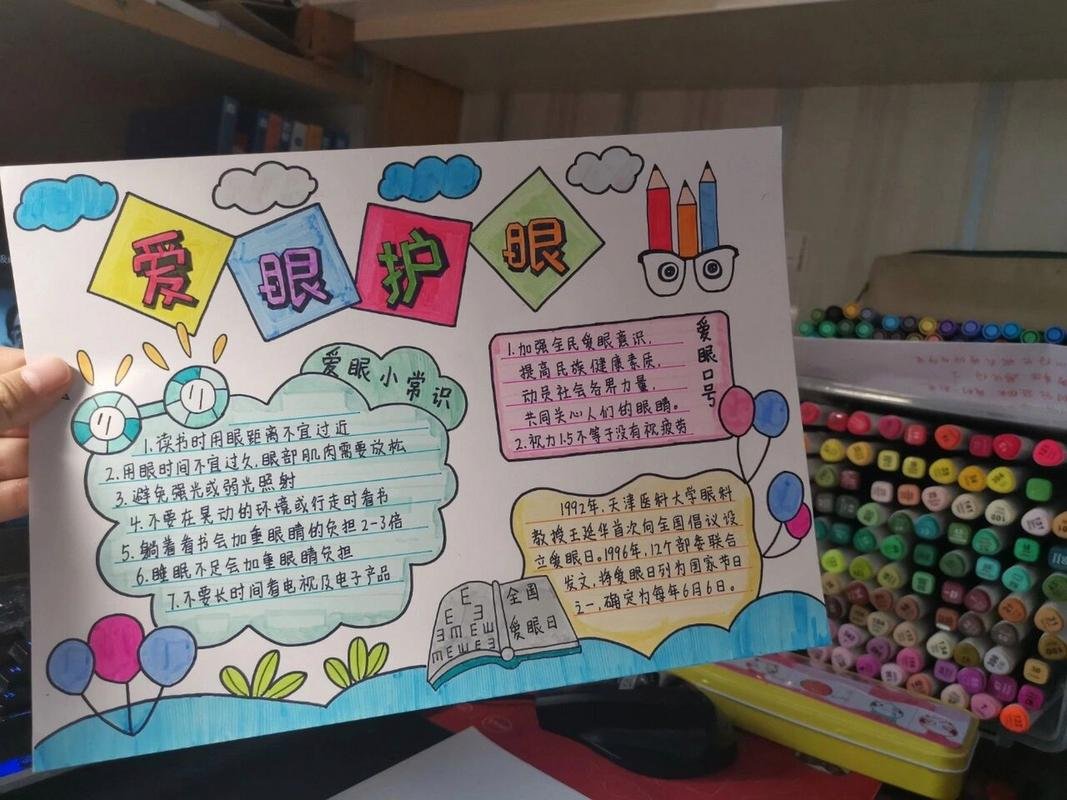 爱眼护眼
爱眼小常识
1.读书时用眼距离不宜过近
2.用眼时间不宜过久.眼部肌肉需要放松
3.避免强光或弱光照射
4.不要在晃动的环境或行走时看书
5.躺着看书会加重眼睛的负担2-3倍
6.睡眠不足会加重眼睛负担
7.不要长时间看电视及电子产品
爱眼口号
1.加强全民爱眼意识,
提高民族健康素质,
动员社会各界力量,
共同关心人们的眼睛。
2.视力1.5不等于没有视疲劳
1992年,天津医科大学眼科
教授王延华首次向全国倡议设
立爱眼日。1996年,12个部委联合
发文,将爱眼日列为国家节日
之一,确定为每年6月6日。
全国
爱眼日
E
E E
E M E W E
M E W E M